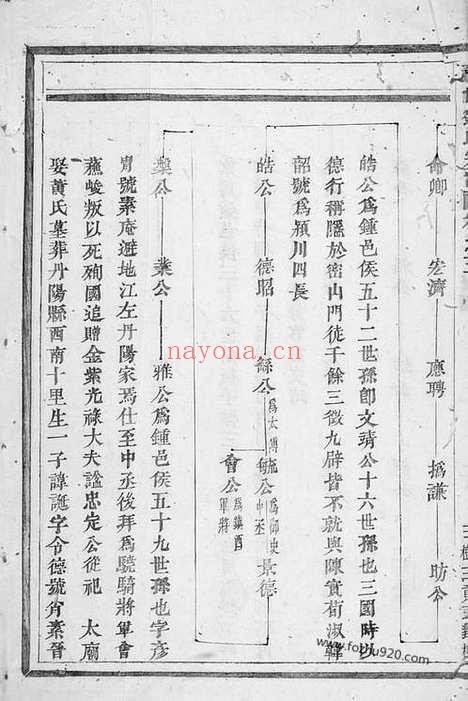 命卿 宏濟 應聘 撝謙 助公
皓公爲鍾邑侯五十二世孫卽文靖公十六世孫也三國時以
德行稱隱於密山門徒千餘三徵九辟皆不就與陳實荀淑韓
韶號爲潁川四長
皓公 德昭 繇公爲太傅 毓公爲御史中丞 景德
會公爲鎮西軍將
業公 雅公爲鍾邑侯五十九世孫也字彥
冑號素庵避地江左丹陽家焉仕至中丞後拜爲驍騎將軍會
蘇峻叛以死殉國追贈金紫光祿大夫謚忠定公從祀 太廟
娶黃氏墓葬丹陽縣西南十里生一子諱誕字令德號肖素晉
nayona.cn
www.foxyu920.com